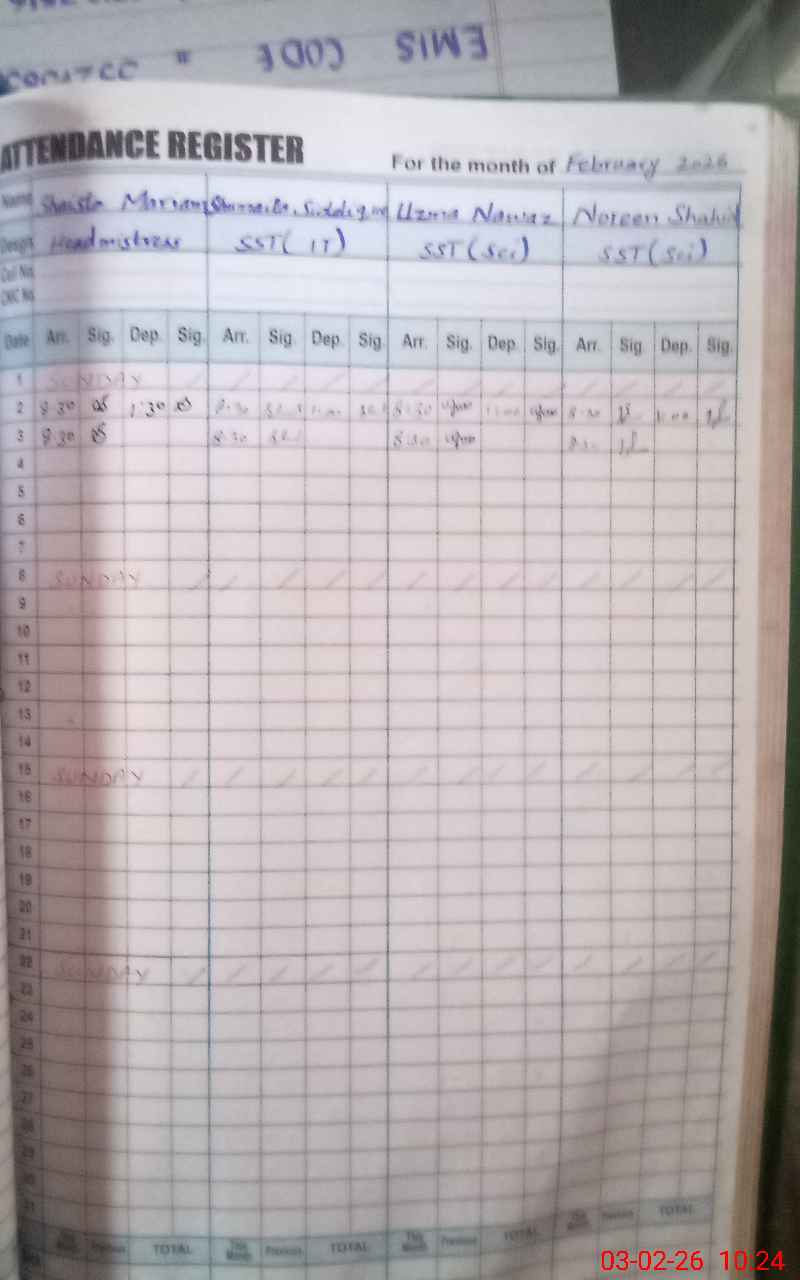 EMIS CODE
ATTENDANCE REGISTER
For the month of February 2026
Name Shaista Mariam Uzma Nawaz Noreen Shahid
Headmistress SST( IT) SST(Sci) SST(Sci)
Cell No.
CNIC No.
Date Arr. Sig. Dep. Sig. Arr. Sig. Dep. Sig. Arr. Sig. Dep. Sig. Arr. Sig. Dep. Sig.
1 SUNDAY
2 8:30 1:30 8:30 8:30 8:30 1:00
3 8:30 8:30 8:30
4
5
6
7
8 SUNDAY
9
10
11
12
13
14
15 SUNDAY
16
17
18
19
20
21
22 SUNDAY
23
24
25
26
27
28
29
30
31
This Month Previous TOTAL This Month Previous TOTAL This Month Previous TOTAL This Month Previous TOTAL
03-02-26 10:24